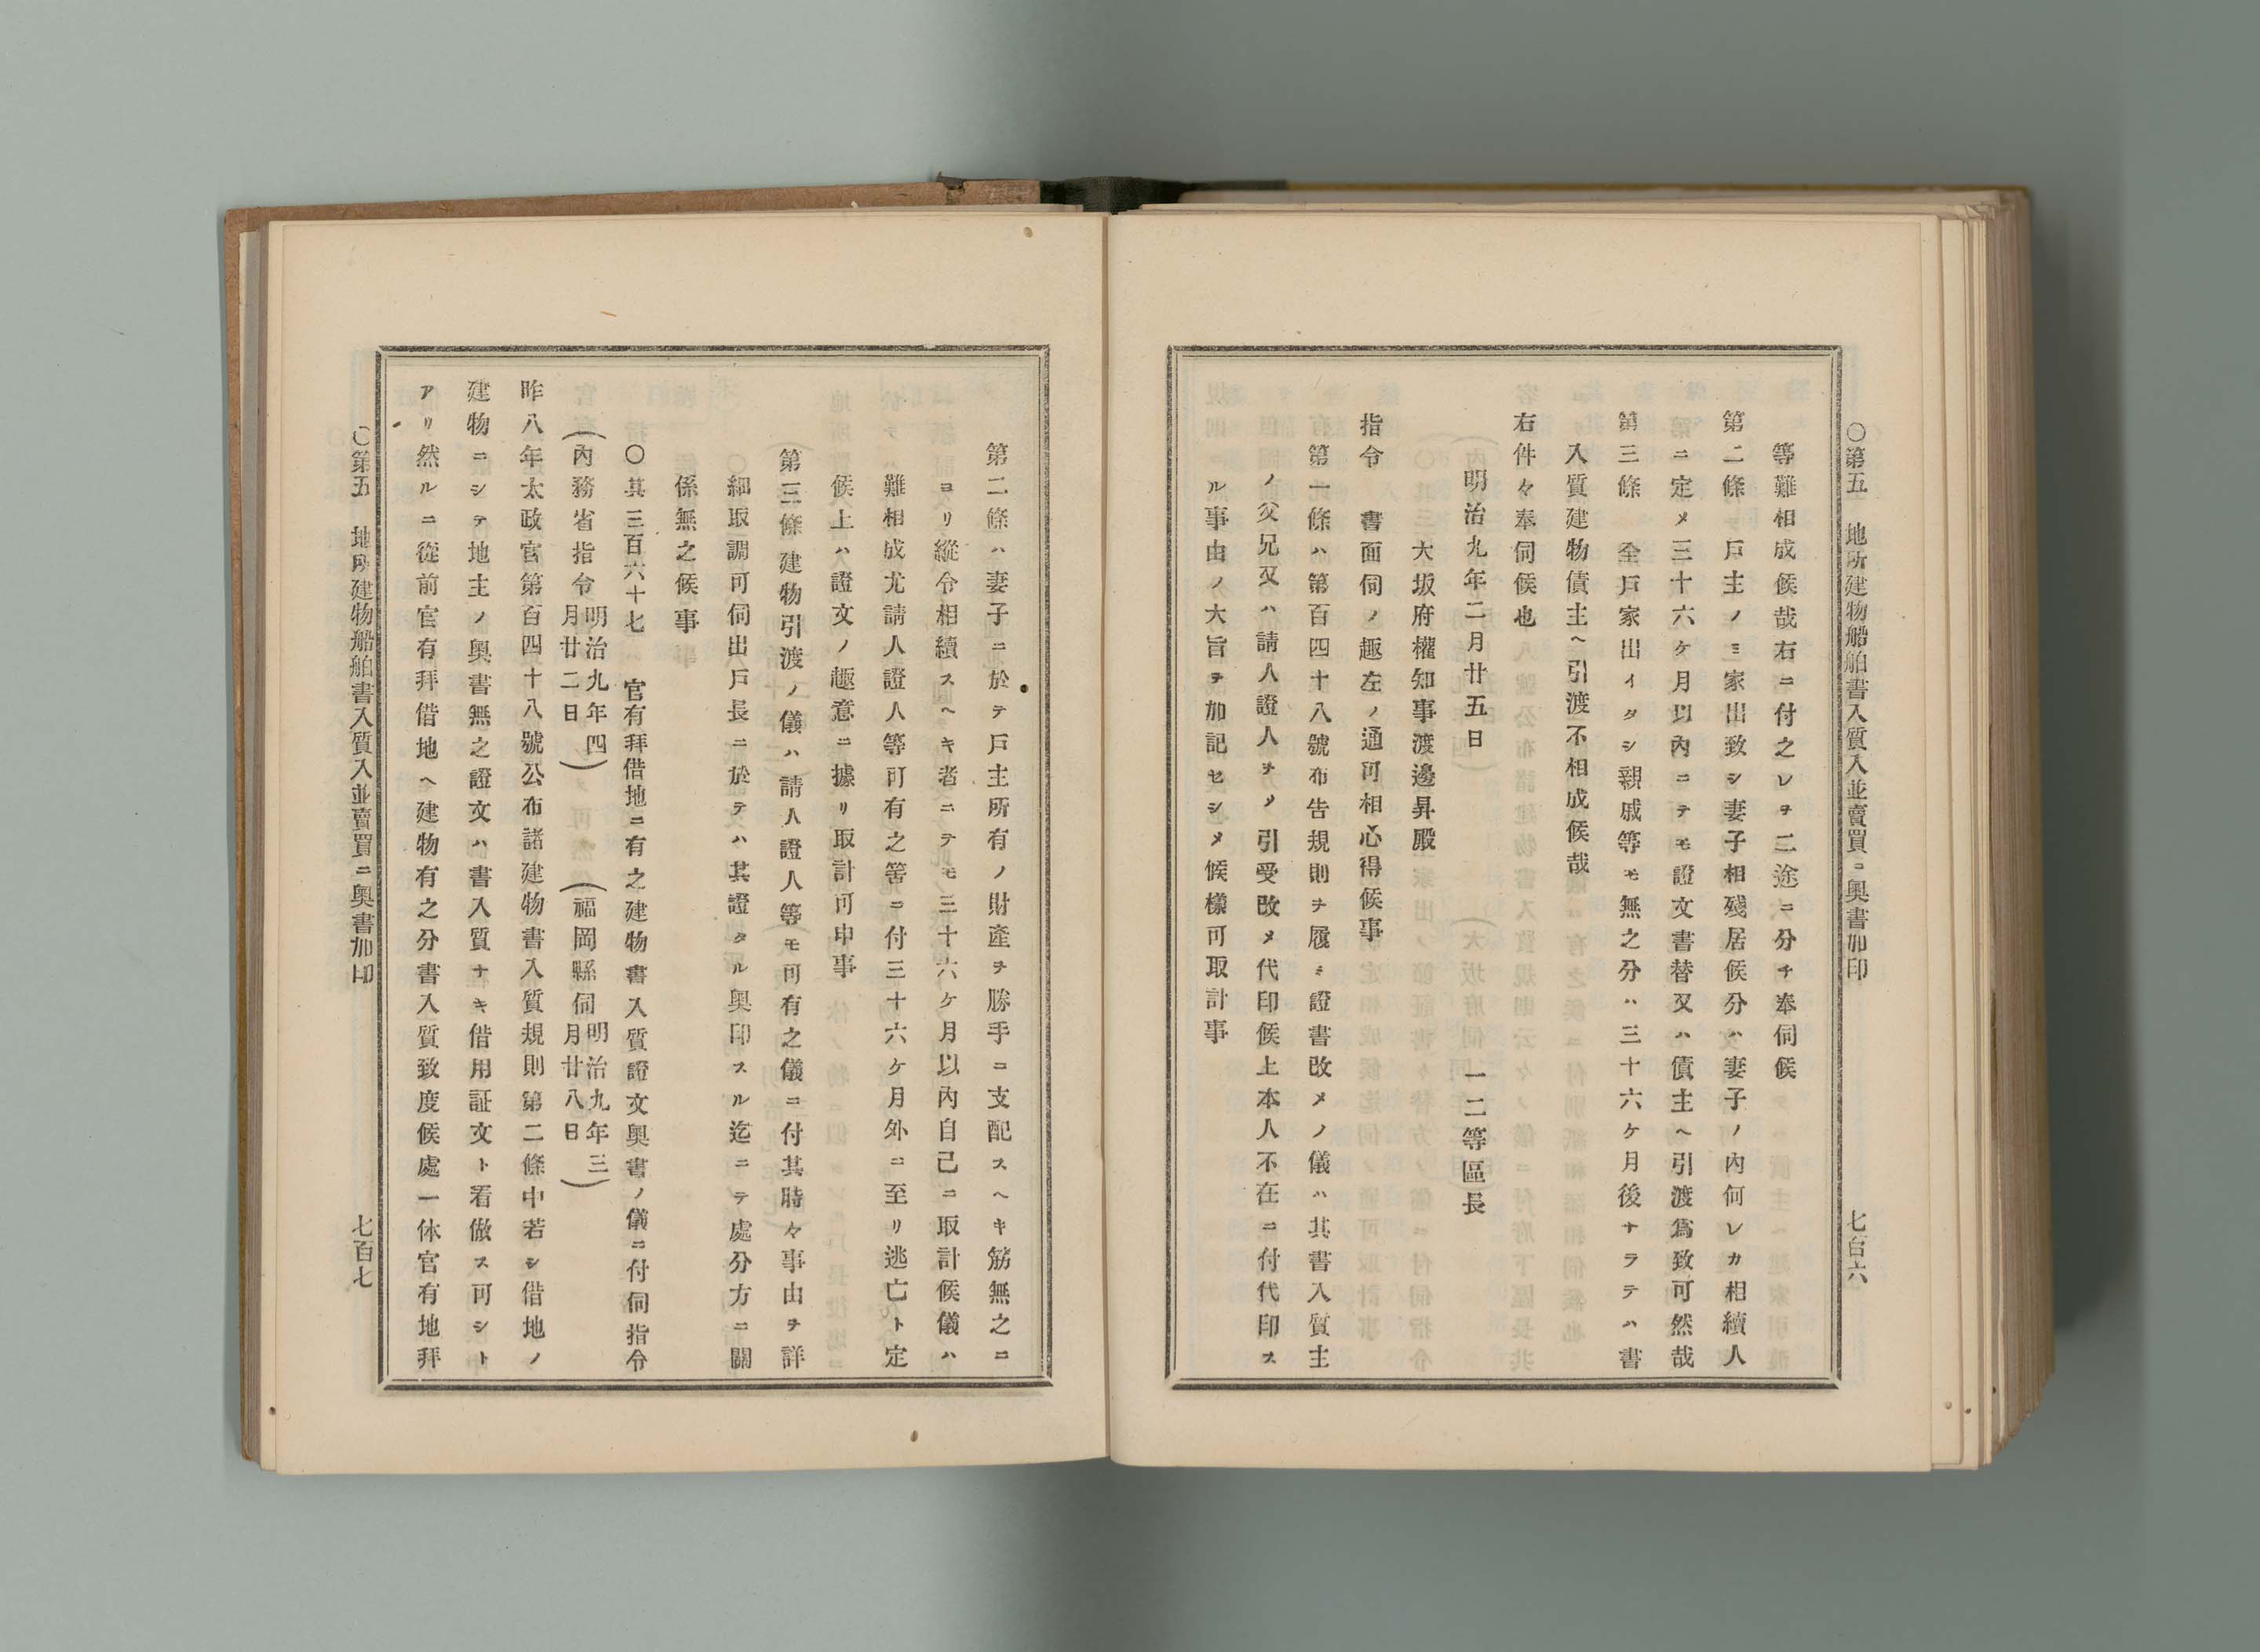 〇第五　地所建物船舶書入質入並賣買ニ奥書加印　七百六
等難相成候哉右ニ付之レヲ二途ニ分チ奉伺候
第二條　戸主ノミ家出致シ妻子相殘居候分ハ妻子ノ內何レカ相續人
ニ定メ三十六ケ月以內ニテモ證文書替又ハ債主ヘ引渡爲致可然哉
第三條　全戸家出イタシ親戚等モ無之分ハ三十六ケ月後ナラテハ書
入質建物債主ヘ引渡不相成候哉
右件々奉伺候也
明治九年二月廿五日　一二等區長
大坂府權知事渡邊昇殿
指令　書面伺ノ趣左ノ通可相心得候事
第一條ハ第百四十八號布告規則ヲ履ミ證書改メノ儀ハ其書入質主
ノ父兄又ハ請人證人ヲメ引受改メ代印候上本人不在ニ付代印ス
ル事由ノ大旨ヲ加記セシメ候樣可取計事
第二條ハ妻子ニ於テ戸主所有ノ財產ヲ勝手ニ支配スヘキ筋無之ニ
ヨリ縱令相續スヘキ者ニテモ三十六ケ月以內自己ニ取計候儀ハ
難相成尤請人證人等可有之筈ニ付三十六ケ月外ニ至リ逃亡ト定
候上ハ證文ノ趣意ニ據リ取計可申事
第三條建物引渡ノ儀ハ請人證人等モ可有之儀ニ付其時々事由ヲ詳
細取調可伺出戸長ニ於テハ其證タル奥印スル迄ニテ處分方ニ關
係無之候事
〇其三百六十七　官有拜借地ニ有之建物書入質證文奥書ノ儀ニ付伺指令
(內務省指令明治九年四月廿二日)　(福岡縣伺明治九年三月廿八日)
昨八年太政官第百四十八號公布諸建物書入質規則第二條中若シ借地ノ
建物ニシテ地主ノ奥書無之證文ハ書入質ナキ借用証文ト看做ス可シト
アリ然ルニ從前官有拜借地ヘ建物有之分書入質致度候處一休官有地拜
〇第五　地所建物船舶書入質入並賣買ニ奥書加印　七百七